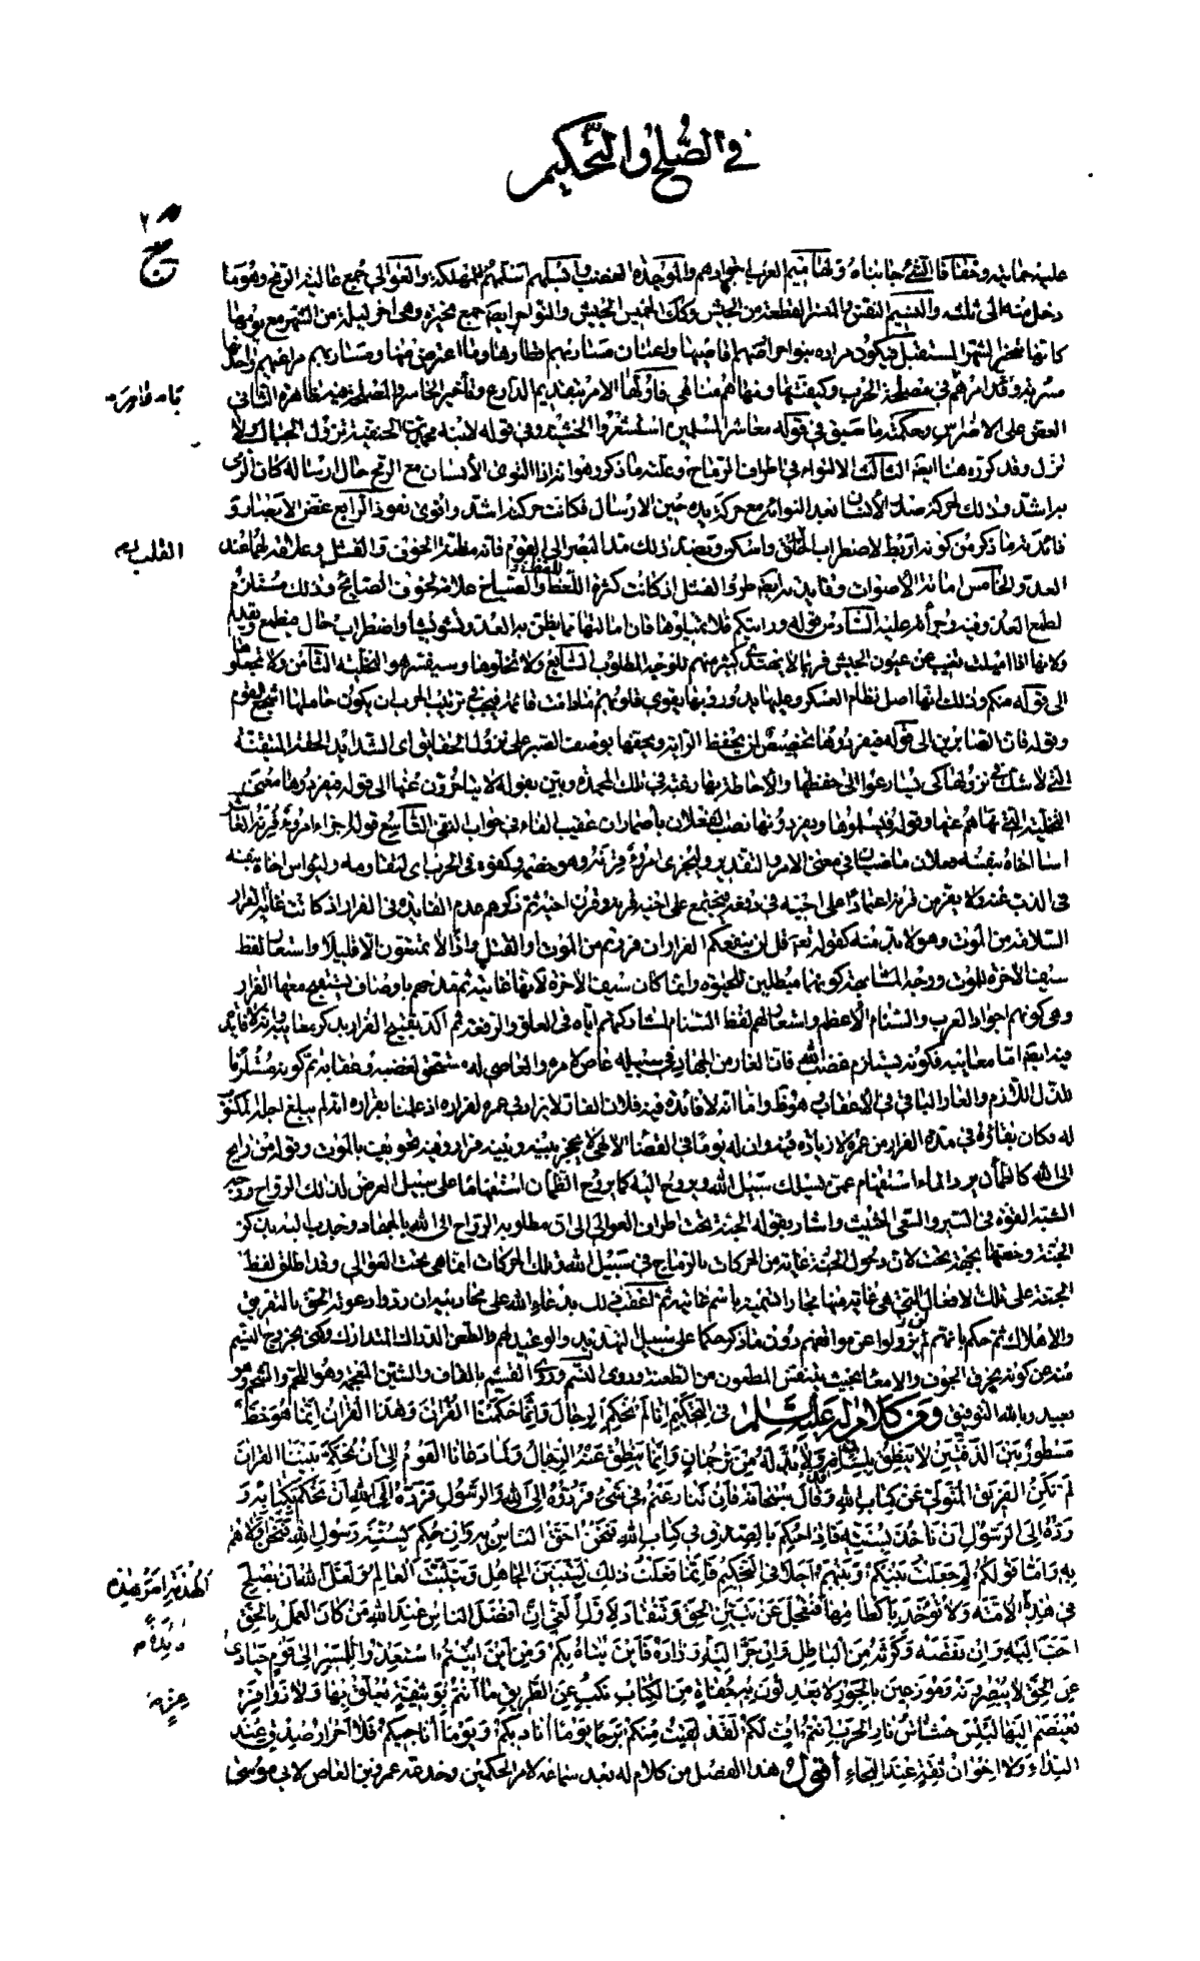 في الصلح والتحكيم
عليه حمايته وحفافا الشئ جانباه ولهاميم العرب اجوادهم والموجدة الغضب وابسلهم اسلمهم للهلكة والعوالي جمع عالية الرمح وهو ما
دخل منه الى ثلثه والنسيم النفس والمنسر القطعة من الجيش وكذلك الخميس الجيش والنواحر ايضا جمع نحيرة وهي اخر ليلة من الشهر مع يومها
كانها تنحر الشهر المستقبل فيكون مراده بنواحر ارضهم اقاصيها واعنان مساربهم اقطارها وما اعترض منها ومساربهم مراعيهم واحدها
مسربة وقد امرهم في مصلحة الحرب وكيفيتها ونهاهم مناهي فاولها الامر بتقديم الدارع وتأخير الحاسر والمصلحة فيه ظاهرة الثاني
العض على الاضراس وحكمته ما سبق في قوله معاشر المسلمين استشعروا الخشية وفي قوله لابنه محمد بن الحنفية تزول الجبال ولا
تزل وقد كرره هنا ايضا الثالث الالتواء في اطراف الرماح وعلته ما ذكر وهو انه اذا التوى الانسان مع الرمح حال ارساله كان الرمي
به اشد وذلك لحركة صدر الانسان بعد التوائه مع حركة يده حين الارسال فكانت حركته اشد واقوى نفوذا الرابع غض الابصار و
فائدته ما ذكر من كونه اربط لاضطراب القلب واسكن وبضد ذلك مد البصر الى القوم فانه مظنة الخوف والفشل وعلامة لهما عند
العدو والخامس اماتة الاصوات وفايدته ايضا طرد الفشل اذ كانت كثرة اللغط والصياح علامة لخوف الصايح وذلك مستلزم
ولانها اذا اميلت تغيب عن عيون الجيش فربما لا يهتدى كثير منهم للوجه المطلوب السابع ولا تخلوها وسيفسره والتخلية الثامن ولا تجعلوها
الى قوله منكم وذلك انها اصل نظام العسكر وعليها يدور وبها يقوى قلوبهم ما دامت قائمة فيجب في ترتيب الحرب ان يكون حاملها اشجع القوم
وقوله فان الصابرين الى قوله فيفردوها تخصيص لمن يحفظ الراية ويحفها بوصف الصبر على نزول الحقايق اى الشدايد الحقة المتيقنة
التي لا شك في نزولها كى يسارعوا الى حفظها والاحاطة بها رغبة في تلك المحمدة وبين بقوله لا يتاخرون عنها الى قوله فيفردوها معنى
التخلية التى نهاهم عنها وقوله فيسلموها ويفردونها نصب الفعلان باضمار ان عقيب الفاء في جواب النفى التاسع قوله اجزاء امرؤ قرنه العاشر
اسا اخاه بنفسه فعلان ماضيان في معنى الامر والتقدير وليجزى امرؤ قرنه وهو خصمه وكفوه في الحرب اى ليقاومه وليواس اخاه بنفسه
في الذب عنه ولا يفر من قرنه اعتمادا على اخيه في دفعه فيجتمع على اخيه قرنه وقرن اخيه ثم ذكرهم عدم الفايدة في الفرار اذ كانت غاية الفرار
السلامة من الموت وهو لا بد منه كقوله تعالى قل لن ينفعكم الفرار ان فررتم من الموت او القتل واذا لا تمتعون الا قليلا واستعار لفظ
سيف الاخرة للموت ووجه المشابهة كونهما مبطلين للحيوة وانما كان سيف الاخرة لانها غايته ثم مدحهم باوصاف يستقبح معها الفرار
وهي كونهم اجواد العرب والسنام الاعظم واستعار لهم لفظ السنام لمشاركتهم اياه في العلو والرفعة ثم اكد تقبيح الفرار بذكر معايبه وانه لا فايدة
فيه ايضا اما معايبه فكونه يستلزم غضب الله فان الفار من الجهاد في سبيله عاص لامره والعاصى له مستحق لغضبه وعقابه ثم كونه مستلزما
للذل اللازم والعار الباقي في الاعقاب وهو ظ واما انه لا فائدة فيه فلان الفار لا يزاد في عمره لفراره اذ علمنا بفراره انه لم يبلغ اجله المكتوب
له فكان بقاؤه في مدة الفرار من عمره لا زيادة فيه وان له يوما في القضا الالهى لا يحجز بينه وبينه فرار وفيه تخويف بالموت وقوله من رايح
الى الله كالظمآن يرد الماء استفهام عمن يسلك سبيل الله ويروح اليه كما يروح الظمان استفهاما على سبيل العرض لذلك الرواح ووجه
الشبه القوة في السير والسعي الحثيث واشار بقوله الجنة تحت اطراف العوالى الى ان مطلوبه الرواح الى الله بالجهاد وجذب اليه بذكر
الجنة وخصها بجهة تحت لان دخول الجنة غاية من الحركات بالرماح في سبيل الله وتلك الحركات انما هي تحت العوالي وقد اطلق لفظ
الجنة على تلك الافعال التي هي غاية منها مجازا تسمية باسم غايته ثم اعقب ذلك بدعاء الله على محاربيه ان ردوا دعوته الحق بالتفريق
والاهلاك ثم حكم بانهم لن يزولوا عن مواقفهم دون ما ذكر حكما على سبيل التهديد والوعيد لهم والطعن الدراك المتدارك وكنى بخروج النسيم
منه عن كونه يخرق الجوف والامعاء بحيث يتنفس المطعون من الطعنة وروى النسم وروى القشم بالقاف والشين المعجمة وهو اللحم والشحم وهو
بعيد وبالله التوفيق ومن كلام له عليه السلم في التحكيم انا لم نحكم الرجال وانما حكمنا القران وهذا القران انما هو خط
مسطور بين الدفتين لا ينطق بلسان ولا بد له من ترجمان وانما ينطق عنه الرجال ولما دعانا القوم الى ان نحكم بيننا القران
لم نكن الفريق المتولي عن كتاب الله وقال سبحانه فان تنازعتم في شئ فردوه الى الله والرسول فرده الى الله ان نحكم بكتابه و
رده الى الرسول ان نأخذ بسنته فاذا حكم بالصدق في كتاب الله فنحن احق الناس به وان حكم بسنة رسول الله فنحن اولاهم
به واما قولكم لم جعلت بينكم وبينهم اجلا في التحكيم فانما فعلت ذلك ليتبين الجاهل ويتثبت العالم ولعل الله ان يصلح
في هذه الامة ولا تؤخذ باكظامها فتعجل عن تبين الحق وتنقاد لاول الغى ان افضل الناس عند الله من كان العمل بالحق
احب اليه وان نقصه وكرثه من الباطل وان جر اليه وزاده فاين يتاه بكم ومن اين اتيتم استعدوا للمسير الى قوم حيارى
عن الحق لا يبصرونه وموزعين بالجور لا يعدلون به جفاة عن الكتاب نكب عن الطريق ما انتم بوثيقة يعلق بها ولا زوافر عز
يعتصم اليها لبئس حشاش نار الحرب انتم اف لكم لقد لقيت منكم برحا يوما اناديكم ويوما اناجيكم فلا احرار صدق عند
النداء ولا اخوان ثقة عند النجاء أقول هذا الفصل من كلام له بعد سماعه لامر الحكمين وخدعة عمرو بن العاص لابي موسى